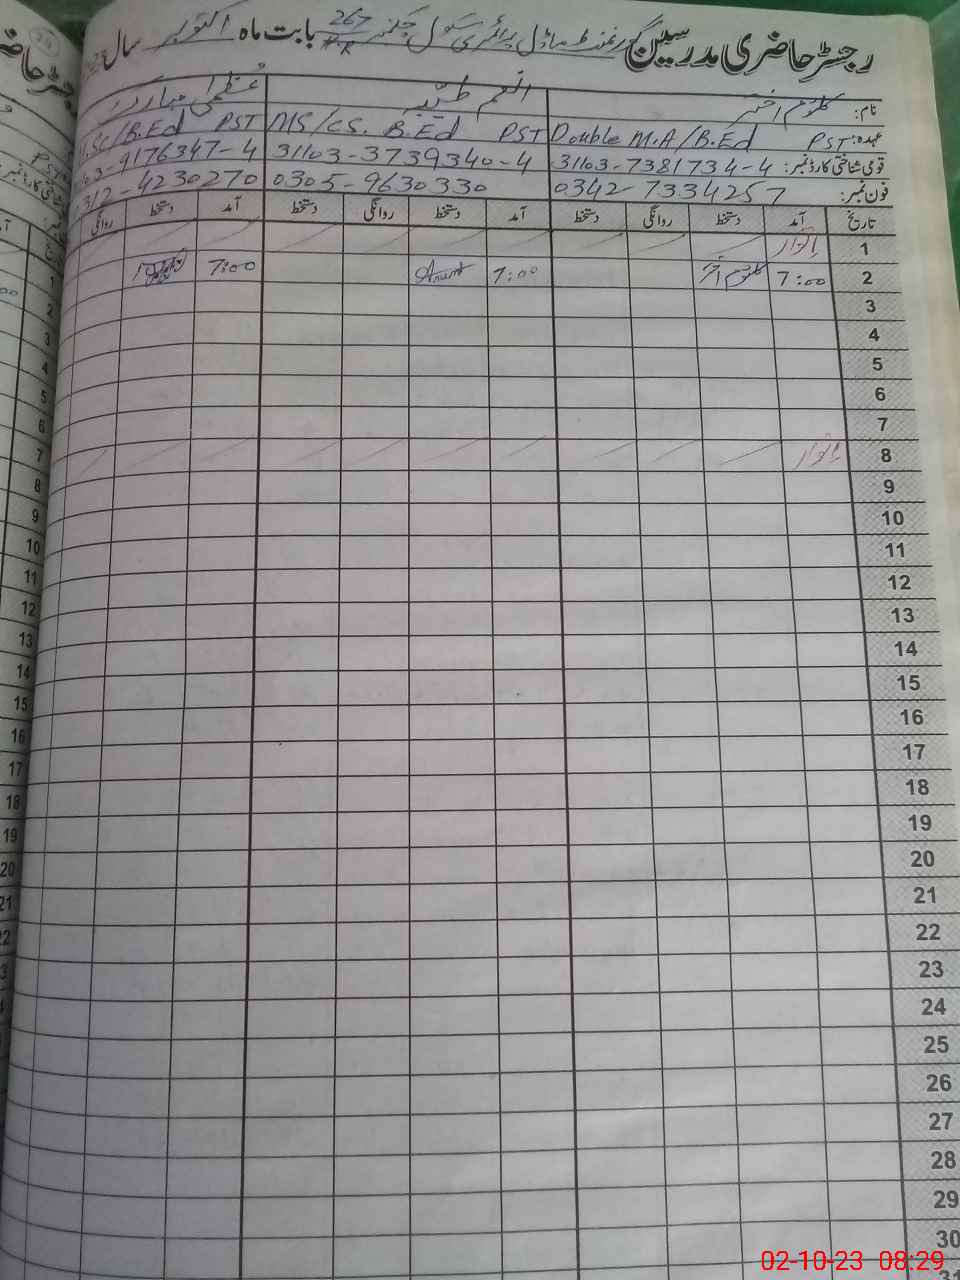 رجسٹر حاضری مدرسین گورنمنٹ ماڈل پرائمری سکول چکنمبر 267 H-R بابت ماہ اکتوبر سال 23
نام: کلثوم اختر انعم طیبہ عظمیٰ مبارک
عہدہ: PST Double M.A/B.Ed PST MS/CS. B.Ed PST M.Sc/B.Ed
قومی شناختی کارڈ نمبر: 31103-7381734-4 31103-3739340-4 31103-9176347-4
فون نمبر: 0342-7334257 0305-9630330 0312-4230270
تاریخ آمد دستخط روانگی دستخط آمد دستخط روانگی دستخط آمد دستخط روانگی
1 اتوار
2 7:00 کلثوم اختر 7:00 Anum 7:00
3
4
5
6
7
8 اتوار
9
10
11
12
13
14
15
16
17
18
19
20
21
22
23
24
25
26
27
28
29
30
31
02-10-23 08:29